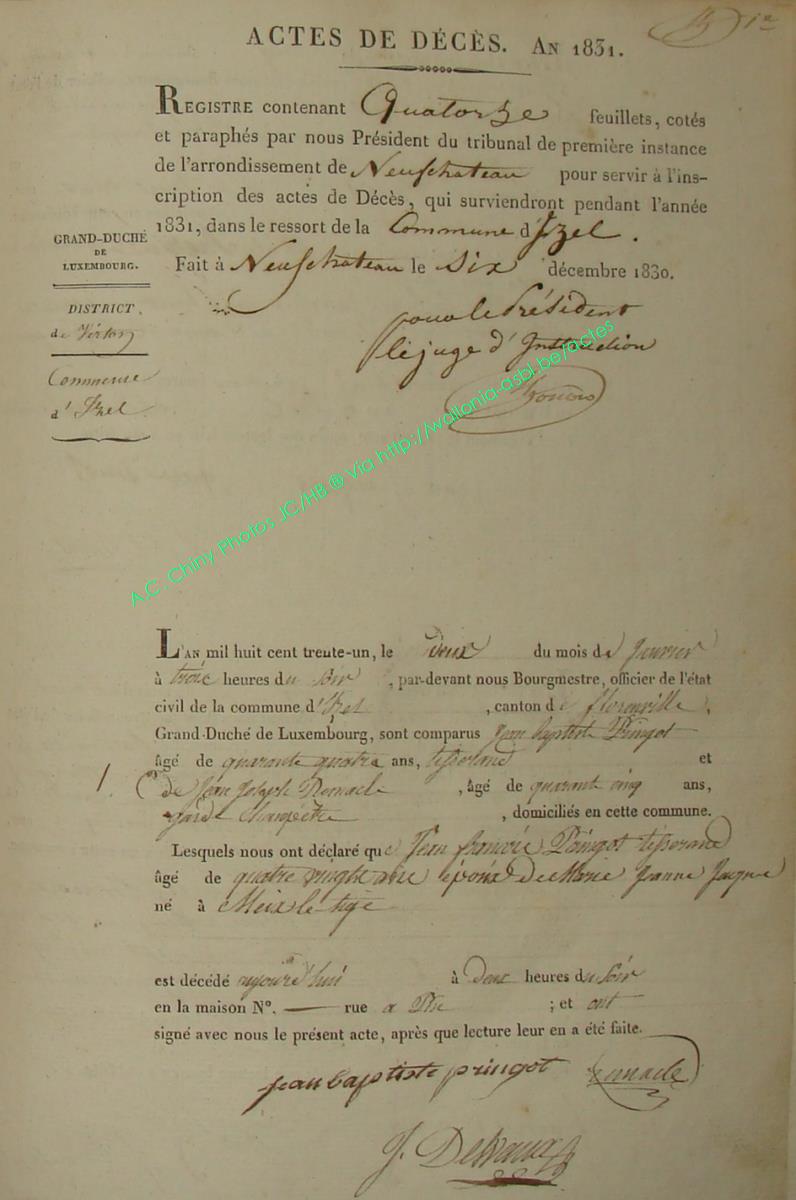 ACTES DE DÉCÈS. AN 1831.
1er
REGISTRE contenant Quatorze feuillets, cotés
et paraphés par nous Président du tribunal de première instance
de l'arrondissement de Neufchateau pour servir à l'ins-
cription des actes de Décès, qui surviendront pendant l'année
1831, dans le ressort de la Commune d'Izel.
Fait à Neufchateau le Six décembre 1830.
GRAND-DUCHÉ
DE
LUXEMBOURG.
DISTRICT
de Virton
Commune
d'Izel
pour le Président
le juge d'Instruction
A.C. Chiny Photos JC/HB ® Via http://wallonia-asbl.be/actes
L'AN mil huit cent trente-un, le deux du mois de Janvier
à trois heures du soir, par-devant nous Bourgmestre, officier de l'état
civil de la commune d'Izel, canton de florenville,
Grand-Duché de Luxembourg, sont comparus Jean baptiste Pringot
âgé de quarante quatre ans, tisserand et
1.
de Jean Joseph Remacle, âgé de quarante cinq ans,
garde Champêtre, domiciliés en cette commune.
Lesquels nous ont déclaré que Jean françois Pringot tisserand
âgé de quatre vingt époux de Marie Jeanne
né à Meix le tige
est décédé aujourd'hui à deux heures du soir
en la maison N°. — rue ; et ont
signé avec nous le présent acte, après que lecture leur en a été faite.
jean baptiste pringot Remacle
J.